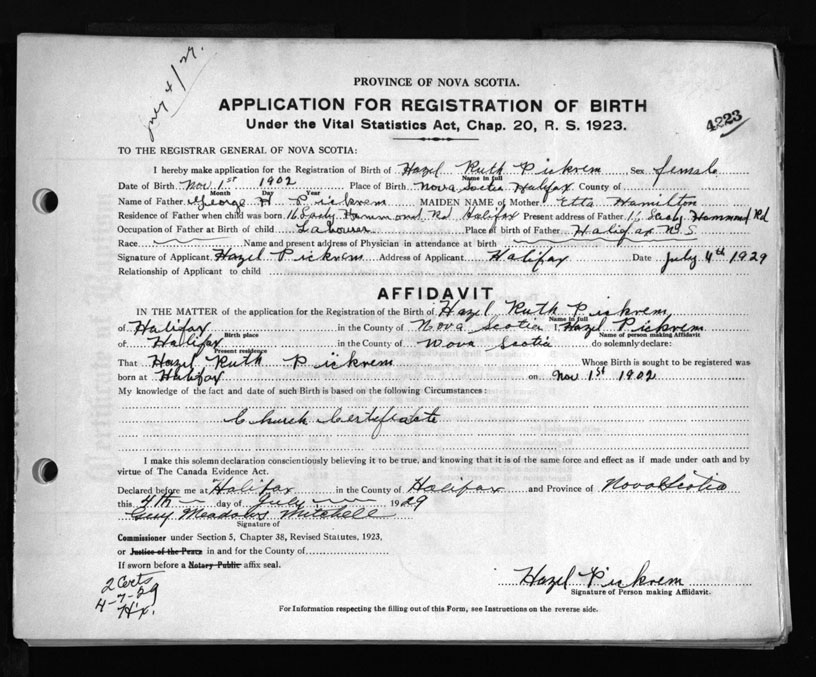 July 4/29.
PROVINCE OF NOVA SCOTIA.
APPLICATION FOR REGISTRATION OF BIRTH
Under the Vital Statistics Act, Chap. 20, R. S. 1923.
4223
TO THE REGISTRAR GENERAL OF NOVA SCOTIA:
I hereby make application for the Registration of Birth of Hazel Ruth Pickrem Sex female
Name in full
Date of Birth Nov 1st 1902 Place of Birth Nova Scotia Halifax County of
Month Day Year
Name of Father George H Pickrem MAIDEN NAME of Mother Etta Hamilton
Residence of Father when child was born 16 Hammond Rd Halifax Present address of Father 16 Hammond Rd
Occupation of Father at Birth of child Labourer Place of birth of Father Halifax N.S
Race Name and present address of Physician in attendance at birth
Signature of Applicant Hazel Pickrem Address of Applicant Halifax Date July 4th 1929
Relationship of Applicant to child
AFFIDAVIT
IN THE MATTER of the application for the Registration of the Birth of Hazel Ruth Pickrem
Name in full
of Halifax in the County of Nova Scotia I, Hazel Pickrem
Birth place Name of person making Affidavit
of Halifax in the County of Nova Scotia do solemnly declare:
Present residence
That Hazel Ruth Pickrem Whose Birth is sought to be registered was
born at Halifax on Nov 1st 1902
My knowledge of the fact and date of such Birth is based on the following Circumstances:
Church Certificate
I make this solemn declaration conscientiously believing it to be true, and knowing that it is of the same force and effect as if made under oath and by
virtue of The Canada Evidence Act.
Declared before me at Halifax in the County of Halifax and Province of Nova Scotia
this 4th day of July 1929
Guy Meadows Mitchell
Signature of
Commissioner under Section 5, Chapter 38, Revised Statutes, 1923,
or Justice of the Peace in and for the County of
If sworn before a Notary Public affix seal.
2 Certs
4-7-29
Hx.
Hazel Pickrem
Signature of Person making Affidavit.
For Information respecting the filling out of this Form, see Instructions on the reverse side.